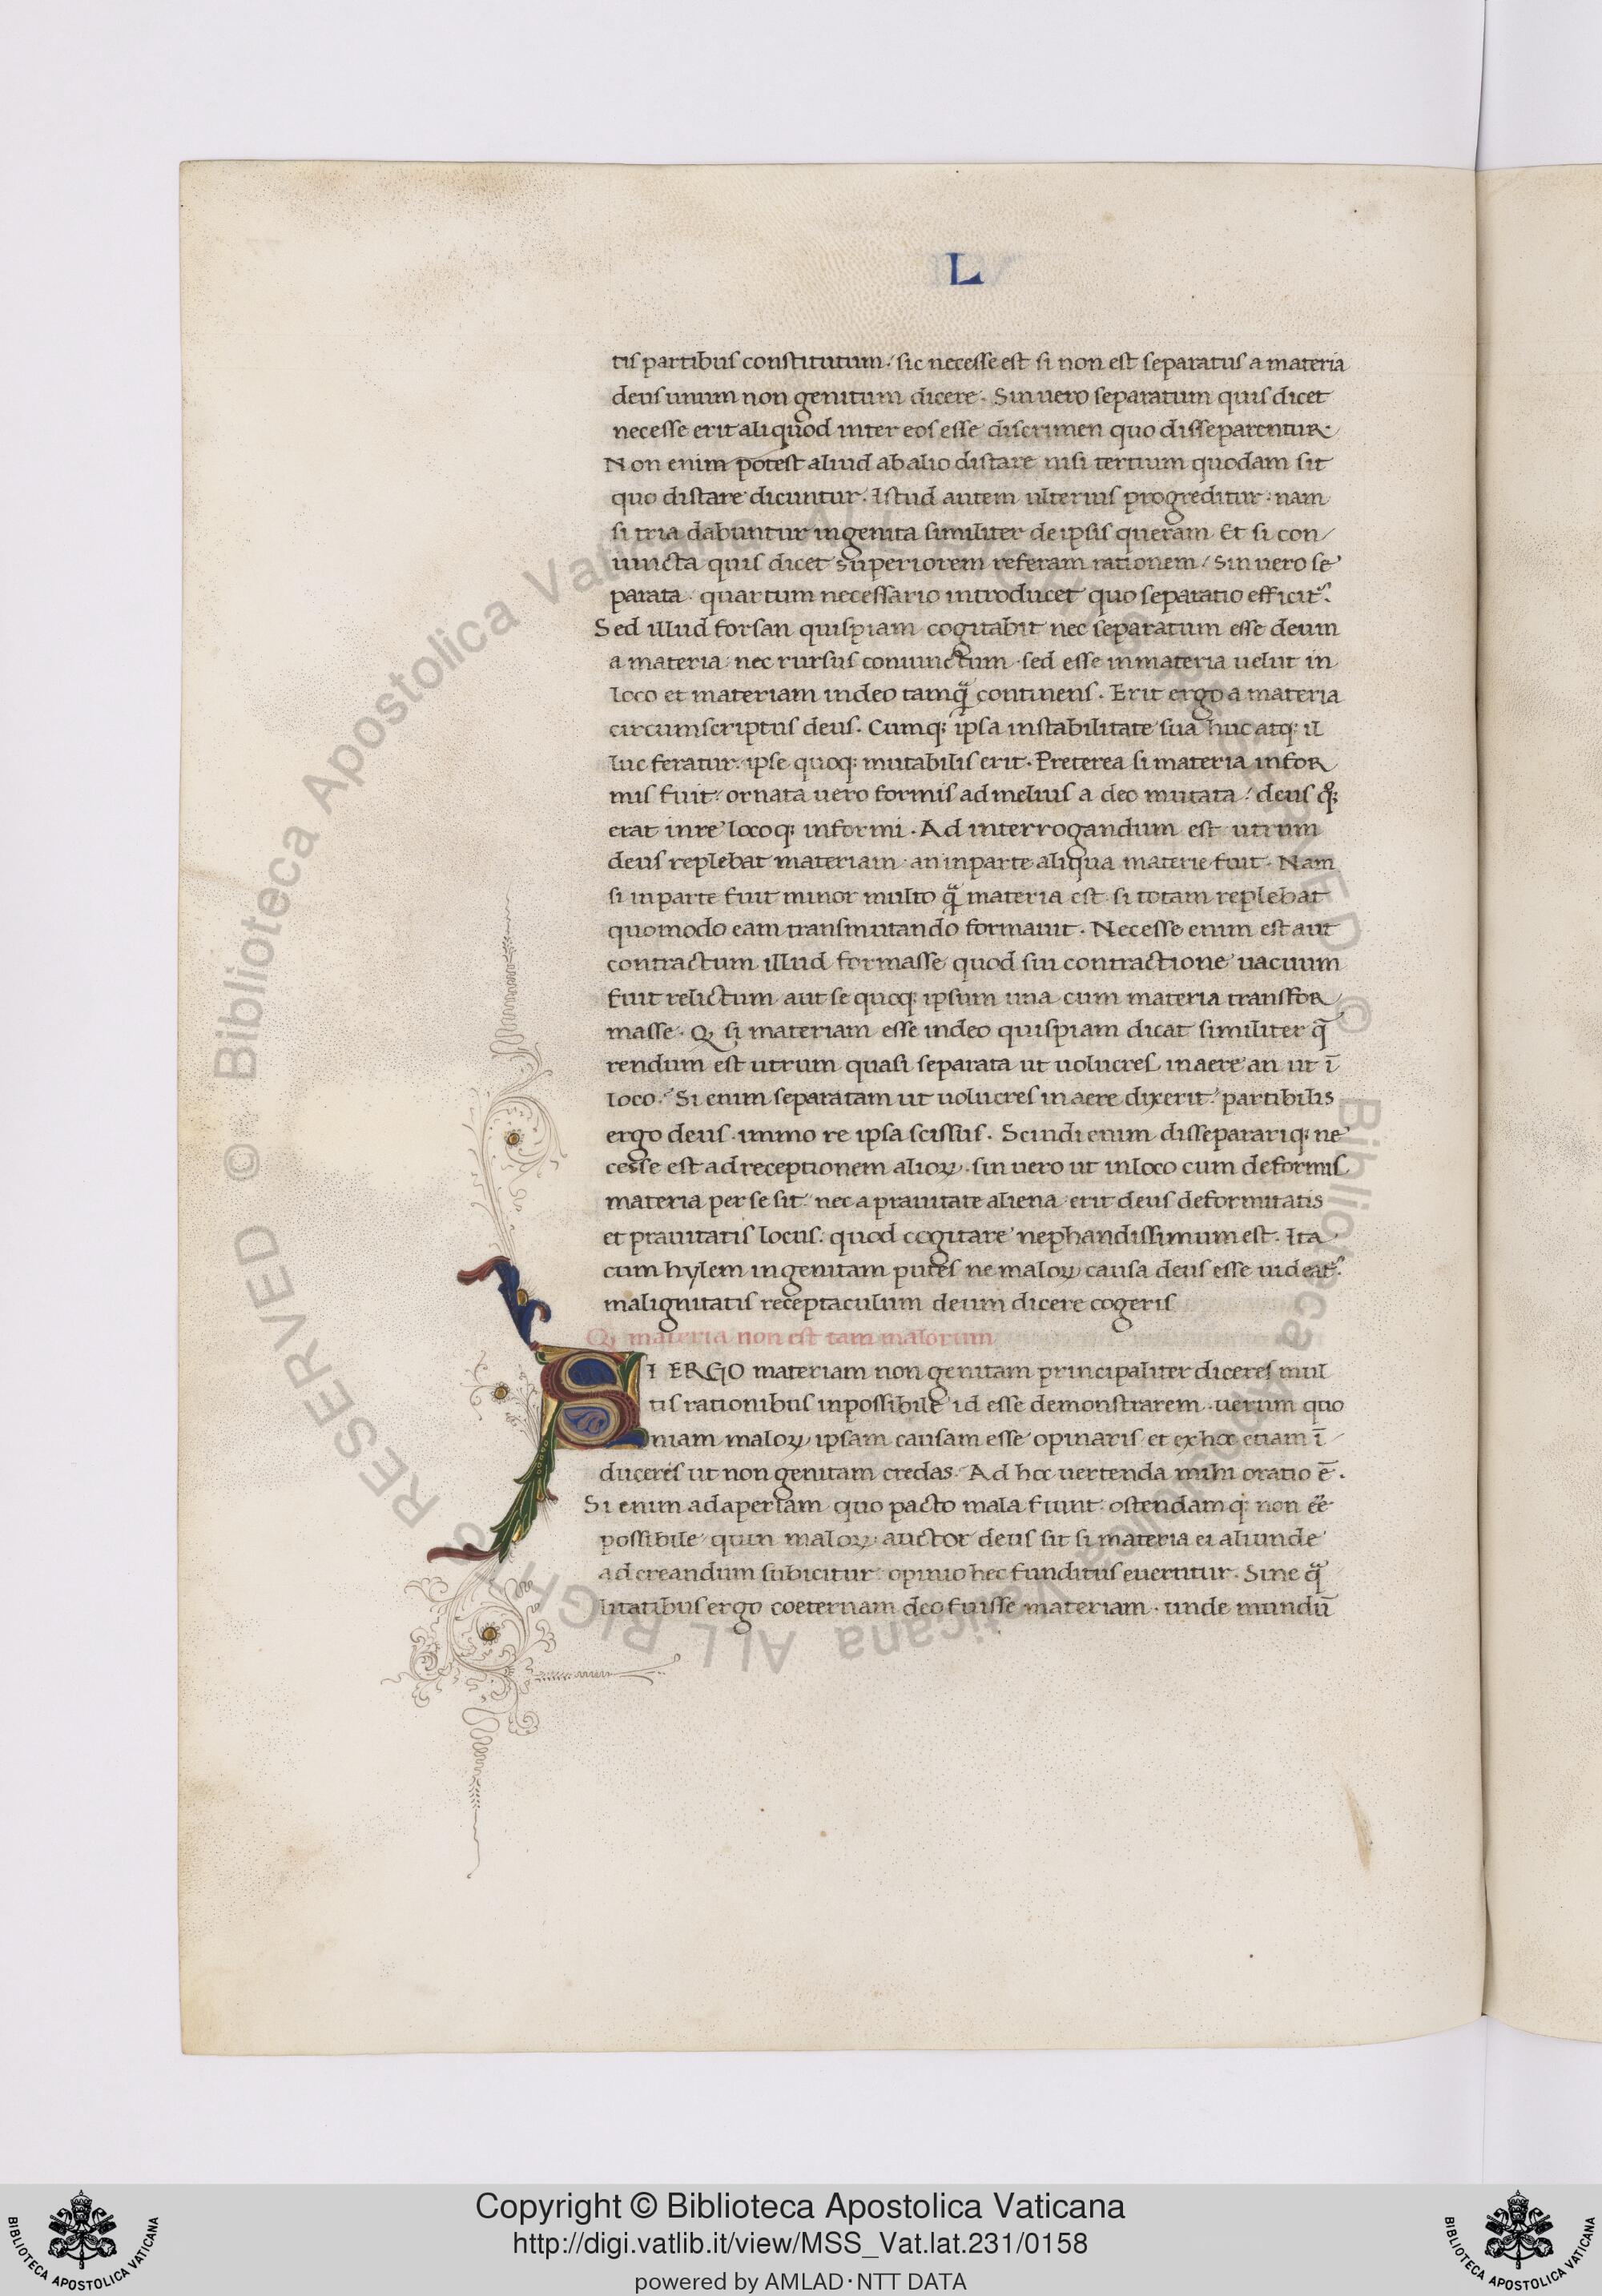 L
tis partibus constitutum. sic necesse est si non est separatus a materia
deus unum non genitum dicere. Sin uero separatum quis dicet
necesse erit aliquod inter eos esse discrimen quo disseparentur.
Non enim potest aliud ab alio distare nisi tertium quodam sit
quo distare dicuntur. Istud autem ulterius progreditur. nam
si tria dabuntur ingenita similiter de ipsis queram. Et si con/
iuncta quis dicet superiorem referam rationem/ sin uero se
parata. quartum necessario introducet quo separatio efficit᷒.
Sed illud forsan quispiam cogitabit nec separatum esse deum
a materia. nec rursus coniunctum. sed esse in materia uelut in
loco et materiam in deo tamq̃ continens. Erit ergo a materia
circumscriptus deus. Cumq; ipsa instabilitate sua huc atq; il
luc feratur. ipse quoq; mutabilis erit. Preterea si materia infor
mis fuit. ornata uero formis ad melius a deo mutata. deus qͦ;
erat in re locoq; informi. Ad interrogandum est utrum
deus replebat materiam. an in parte aliqua materie fuit. Nam
si in parte fuit minor multo q̃ materia est. si totam replebat
quomodo eam transmutando formauit. Necesse enim est aut
contractum illud formasse quod sui contractione uacuum
fuit relictum. aut se quoq; ipsum una cum materia transfor/
masse. Q si materiam esse in deo quispiam dicat similiter q̄
rendum est utrum quasi separata ut uolucres in aere an ut ī
loco. Si enim separatam ut uolucres in aere dixerit. partibilis
ergo deus. immo re ipsa scissus. Scindi enim disseparariq; ne
cesse est ad receptionem alioꝝ. sin uero ut in loco cum deformis
materia per se sit. nec a prauitate aliena. erit deus deformitatis
et prauitatis locus. quod cogitare nephandissimum est. Ita
cum hylem ingenitam putes ne maloꝝ causa deus esse uideat᷒.
malignitatis receptaculum deum dicere cogeris
Q materia non est tam malorum
SI ERGO materiam non genitam principaliter diceres mul
tis rationibus inpossibile id esse demonstrarem. uerum quo
niam maloꝝ ipsam causam esse opinaris et ex hoc etiam ī
duceris ut non genitam credas. Ad hoc uertenda mihi oratio ē.
Si enim adaperiam quo pacto mala fiunt. ostendamq; non eē
possibile quin maloꝝ auctor deus sit si materia ei aliunde
ad creandum subicitur. opinio hec funditus euertitur. Sine q̃
litatibus ergo coeternam deo fuisse materiam. unde mundū
© Biblioteca Apostolica Vaticana ALL RIGHTS RESERVED © Biblioteca Apostolica Vaticana ALL RIGHTS RESERVED
BIBLIOTECA APOSTOLICA VATICANA
Copyright © Biblioteca Apostolica Vaticana
http://digi.vatlib.it/view/MSS_Vat.lat.231/0158
powered by AMLAD·NTT DATA
BIBLIOTECA APOSTOLICA VATICANA